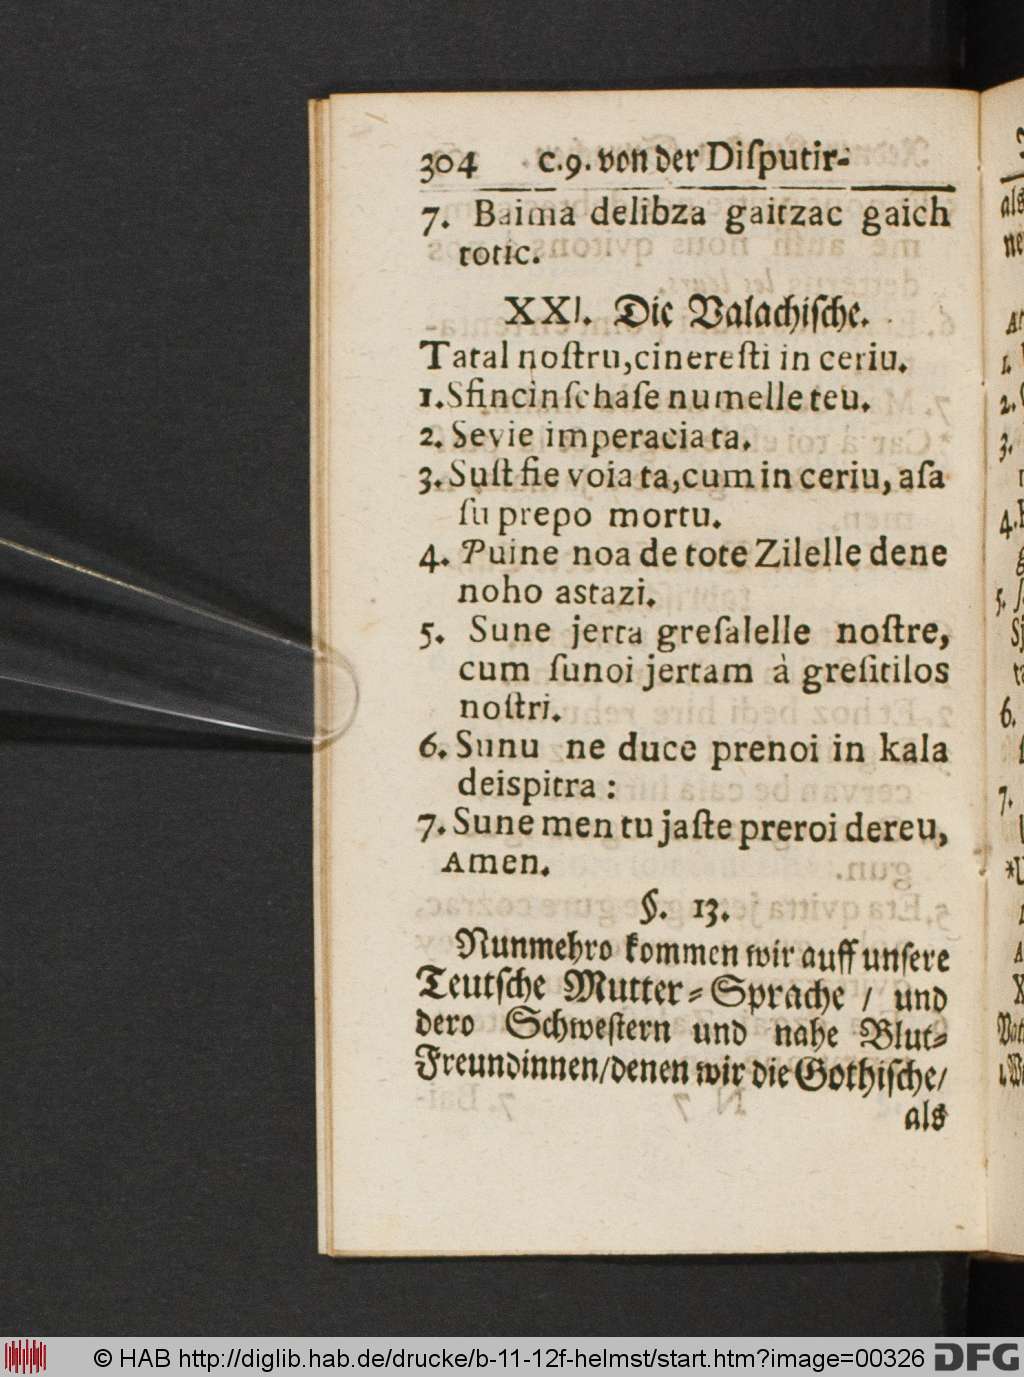 304 c.9. von der Diſputir-
7. Baima delibza gaitzac gaich
totic.
XXI. Die Valachiſche.
Tatal noſtru, cinereſti in ceriu.
1. Sfincinſchaſe numelle teu.
2. Sevie imperacia ta.
3. Suſt fie voia ta, cum in ceriu, aſa
ſu prepo mortu.
4. Puine noa de tote Zilelle dene
noho astazi.
5. Sune jerta greſalelle noſtre,
cum ſunoi jertam à greſitilos
noſtri.
6. Sunu ne duce prenoi in kala
deispitra :
7. Sune men tu jaſte preroi dereu,
Amen.
§. 13.
Nunmehro kommen wir auff unſere
Teutſche Mutter-Sprache / und
dero Schweſtern und nahe Blut-
Freundinnen/denen wir die Gothiſche/
als
© HAB http://diglib.hab.de/drucke/b-11-12f-helmst/start.htm?image=00326 DFG